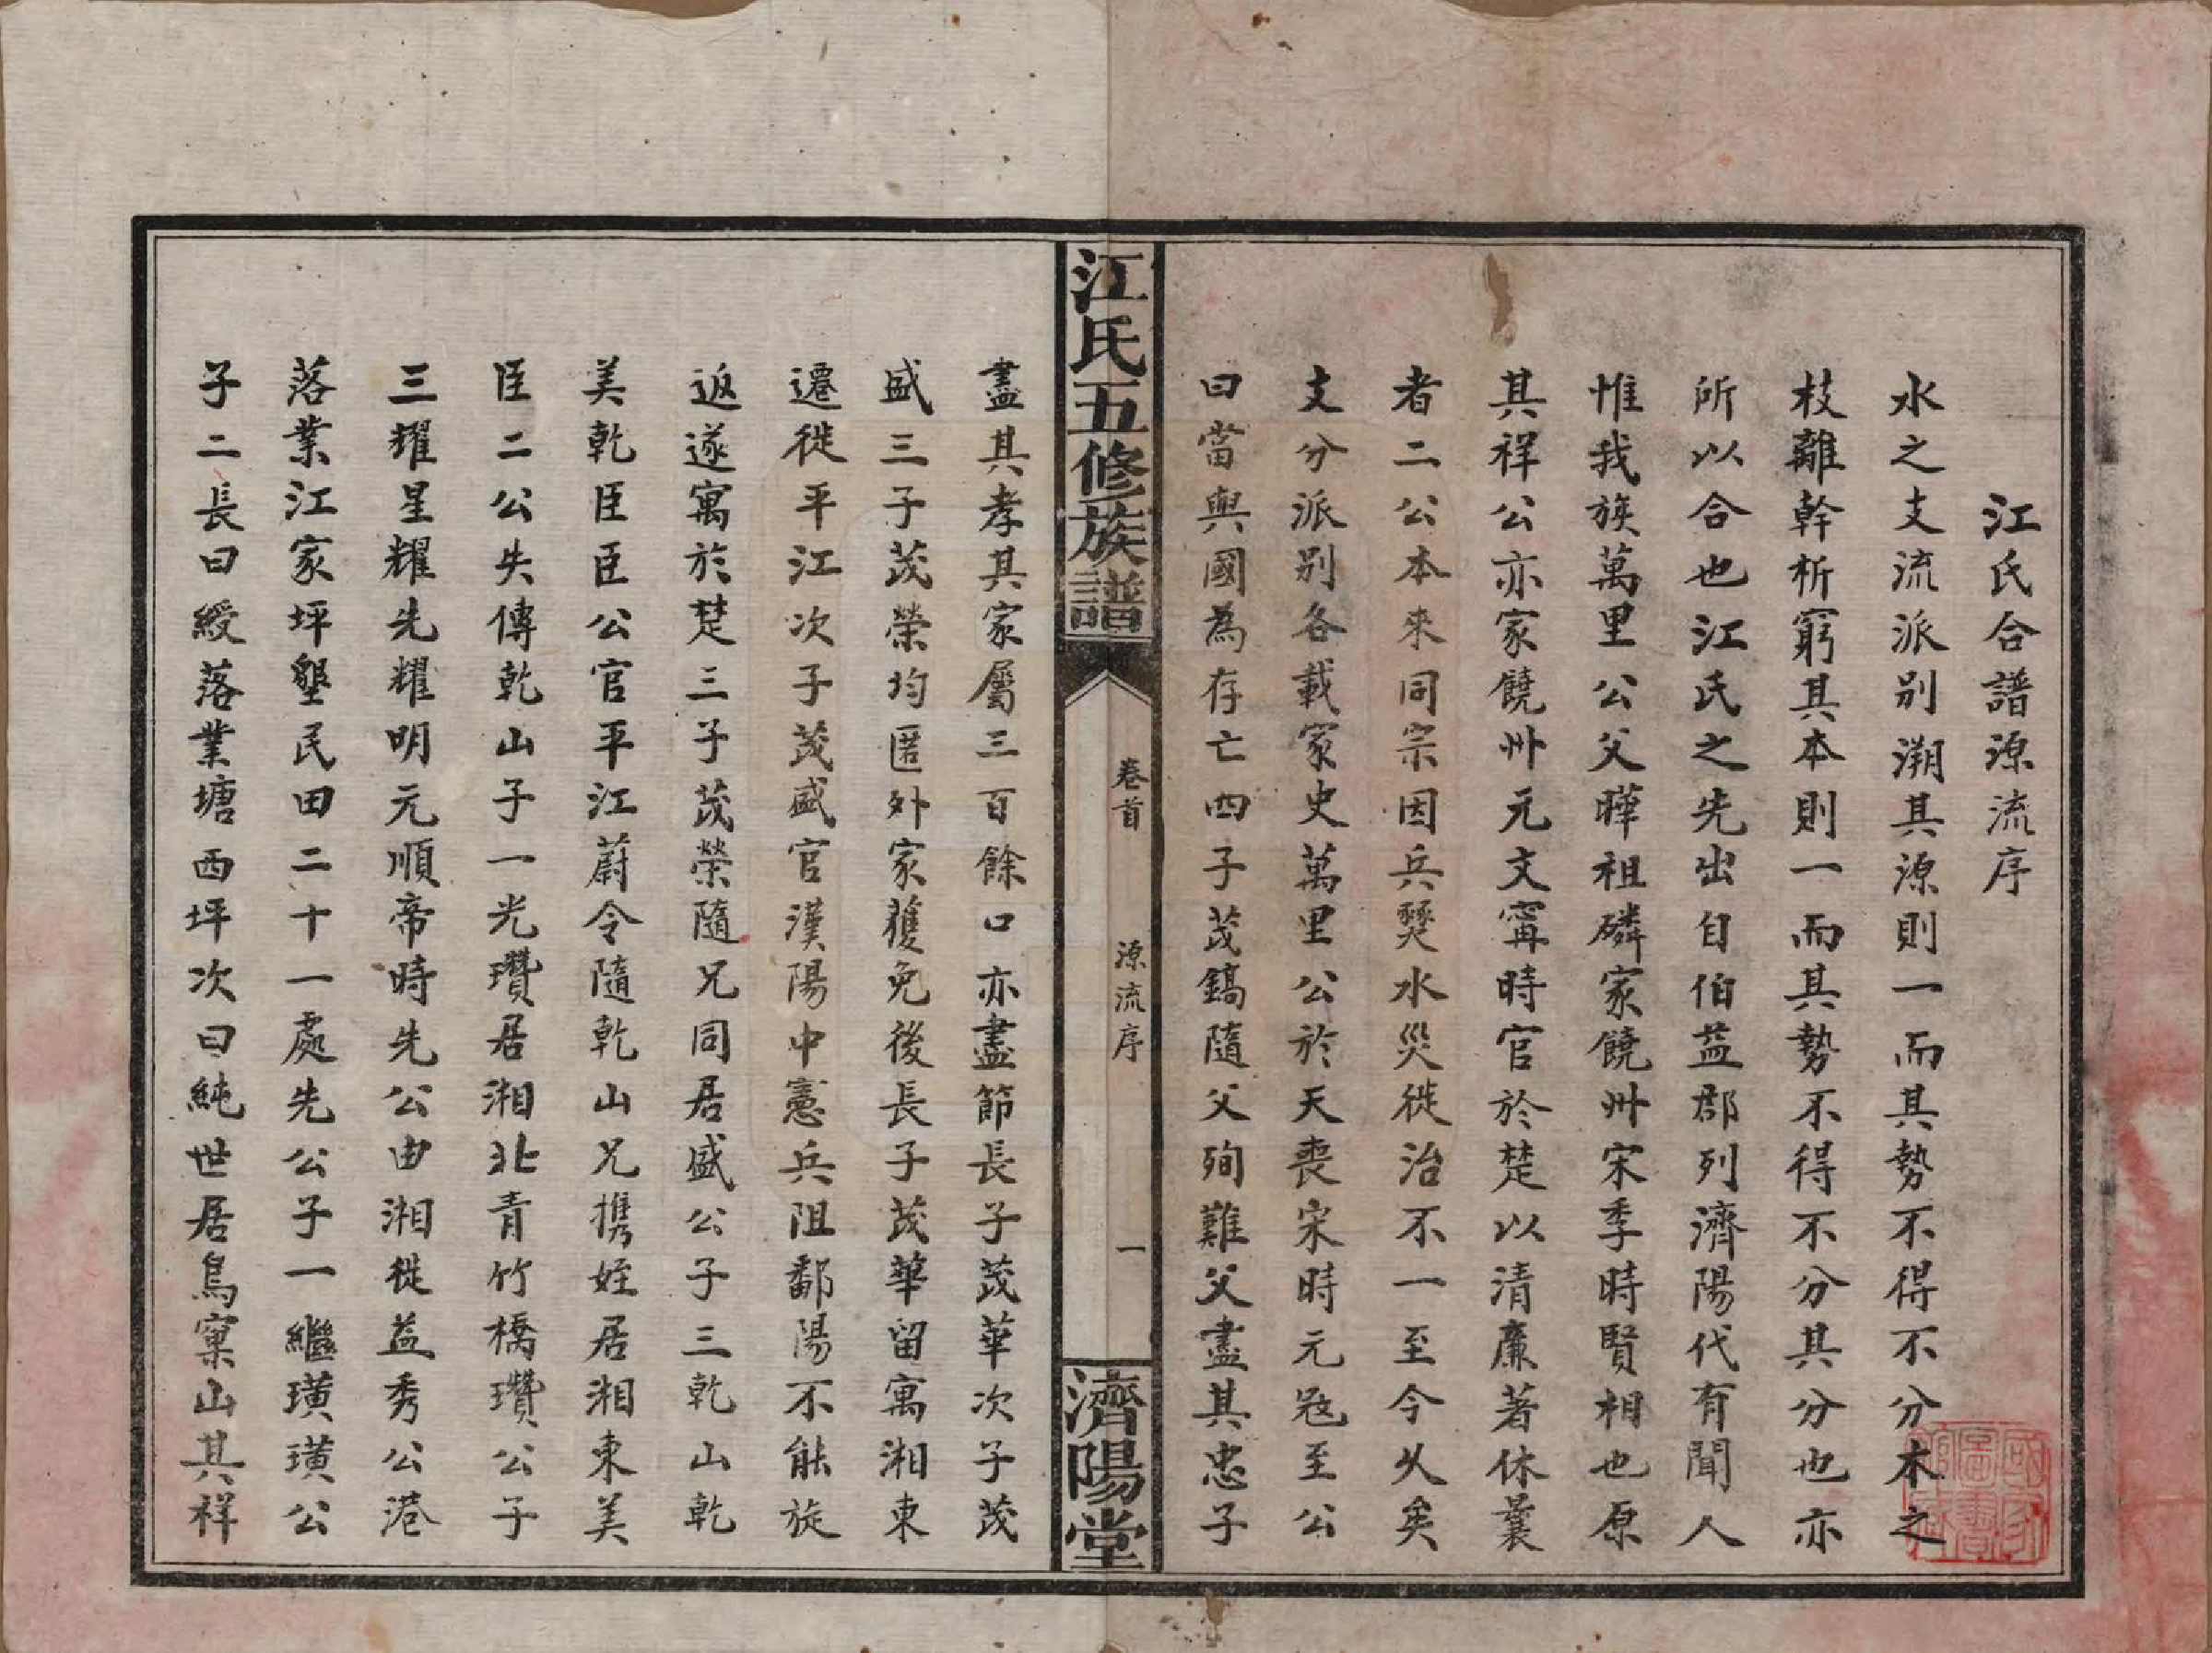 江氏合譜源流序
水之支流派别溯其源則一而其勢不得不分木之
枝離幹析窮其本則一而其勢不得不分其分也亦
所以合也江氏之先出自伯益郡列濟陽代有聞人
惟我族萬里公父曄祖磷家饒州宋季時賢相也原
其祥公亦家饒州元文甯時官於楚以清廉著休曩
者二公本來同宗因兵燹水災徙治不一至今乆矣
支分派别各載家史萬里公於天喪宋時元冦至公
曰當與國為存亡四子茂鎬隨父殉難父盡其忠子
江氏五修族譜
卷首
源流序
一
濟陽堂
盡其孝其家屬三百餘口亦盡節長子茂華次子茂
盛三子茂榮均匿外家獲免後長子茂華留寓湘東
遷徙平江次子茂盛官漢陽中憲兵阻鄱陽不能旋
返遂寓於楚三子茂榮隨兄同居盛公子三乾山乾
美乾臣臣公官平江蔚令隨乾山兄携姪居湘東美
臣二公失傳乾山子一光瓚居湘北青竹橋瓚公子
三耀星耀先耀明元順帝時先公由湘徙益秀公港
落業江家坪墾民田二十一處先公子一繼璜璜公
子二長曰綬落業塘西坪次曰純世居鳥窠山其祥